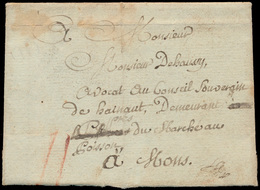 A Monsieur
Monsieur Dehaussy
avocat au Conseil Souverain
de hainaut, Demeurant
près du Marché au
Poisson
à Mons.